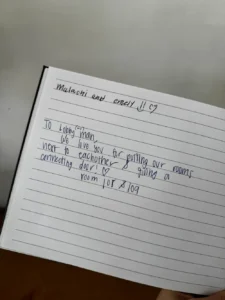 Malachi and emely !! ♡
To Lobby man,
We love you for putting our rooms
next to eachother & giving a
connecting door! ♡
room 108 & 109